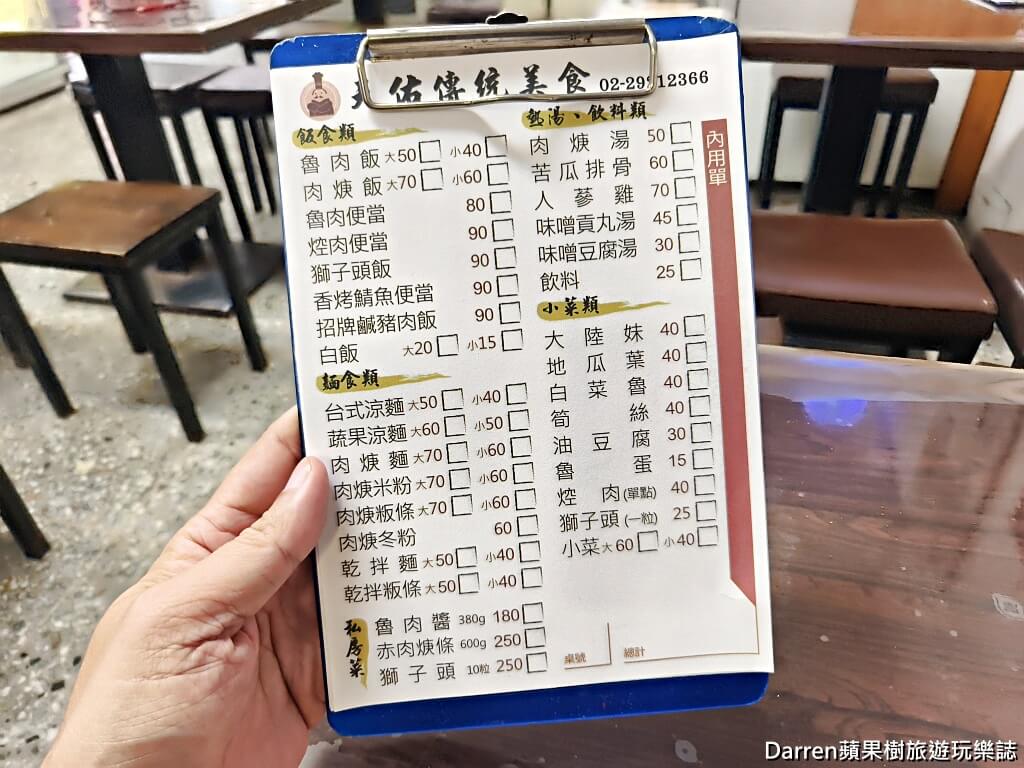 佑傳統美食 02-29812366
飯食類
魯肉飯 大50 小40
肉焿飯 大70 小60
魯肉便當 80
焢肉便當 90
獅子頭飯 90
香烤鯖魚便當 90
招牌鹹豬肉飯 90
白飯 大20 小15
麵食類
台式涼麵 大50 小40
蔬果涼麵 大60 小50
肉焿麵 大70 小60
肉焿米粉 大70 小60
肉焿粄條 大70 小60
肉焿冬粉 60
乾拌麵 大50 小40
乾拌粄條 大50 小40
私房菜
魯肉醬 380g 180
赤肉焿條 600g 250
獅子頭 10粒 250
熱湯、飲料類
肉焿湯 50
苦瓜排骨 60
人蔘雞 70
味噌貢丸湯 45
味噌豆腐湯 30
飲料 25
小菜類
大陸妹 40
地瓜葉 40
白菜魯 40
筍絲 40
油豆腐 30
魯蛋 15
焢肉(單點) 40
獅子頭(一粒) 25
小菜 大60 小40
內用單
桌號
總計
Darren蘋果樹旅遊玩樂誌